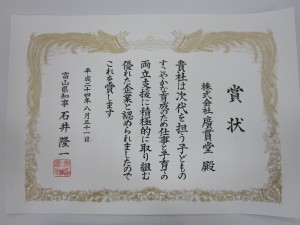 賞状
株式会社廣貫堂 殿
貴社は次代を担う子どもの
すこやかな育成のため仕事と子育ての
両立支援に積極的に取り組む
優れた企業と認められましたので
これを賞します
平成二十四年八月三十一日
富山県知事 石井隆一